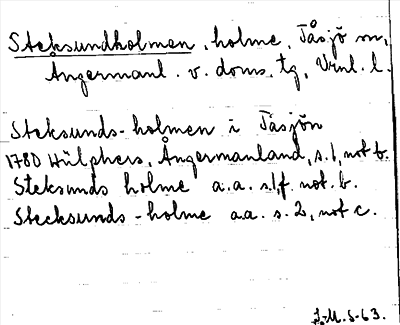 Steksundholmen, holme, Tåsjö sn,
Ångermanl. v. doms. tg, Vrnl. l.
Steksunds-holmen i Tåsjön
1780 Hülphers, Ångermanland, s. 1, not b.
Steksunds holme a.a. s. 1, f. not. b.
Stecksunds-holme a.a. s. 2, not c.
J.M. S-63.